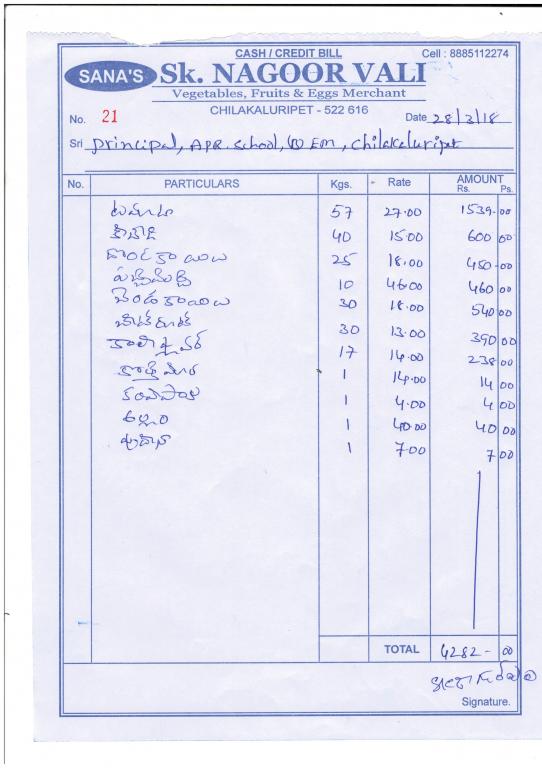 CASH / CREDIT BILL
Cell : 8885112274
SANA'S Sk. NAGOOR VALI
Vegetables, Fruits & Eggs Merchant
CHILAKALURIPET - 522 616
No. 21 Date 28/3/18
Sri Principal, APR. School, (U) EM, Chilakaluripet
No. PARTICULARS Kgs. Rate AMOUNT
Rs. Ps.
టమాటా 57 27.00 1539-00
40 15.00 600 00
దొండకాయలు 25 18.00 450-00
పచ్చిమిర్చి 10 46.00 460 00
బెండకాయలు 30 18.00 540 00
బీట్రూట్ 30 13.00 390 00
కాలిఫ్లవర్ 17 14.00 238 00
కొత్తిమీర 1 14.00 14 00
1 4.00 4 00
అల్లం 1 40.00 40 00
పుదీనా 1 7.00 7 00
TOTAL 4282-00
Signature.